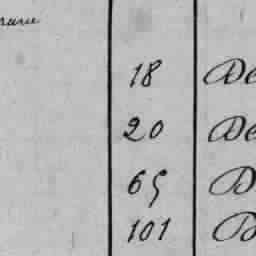 18 De
20 De
65 D
101 D